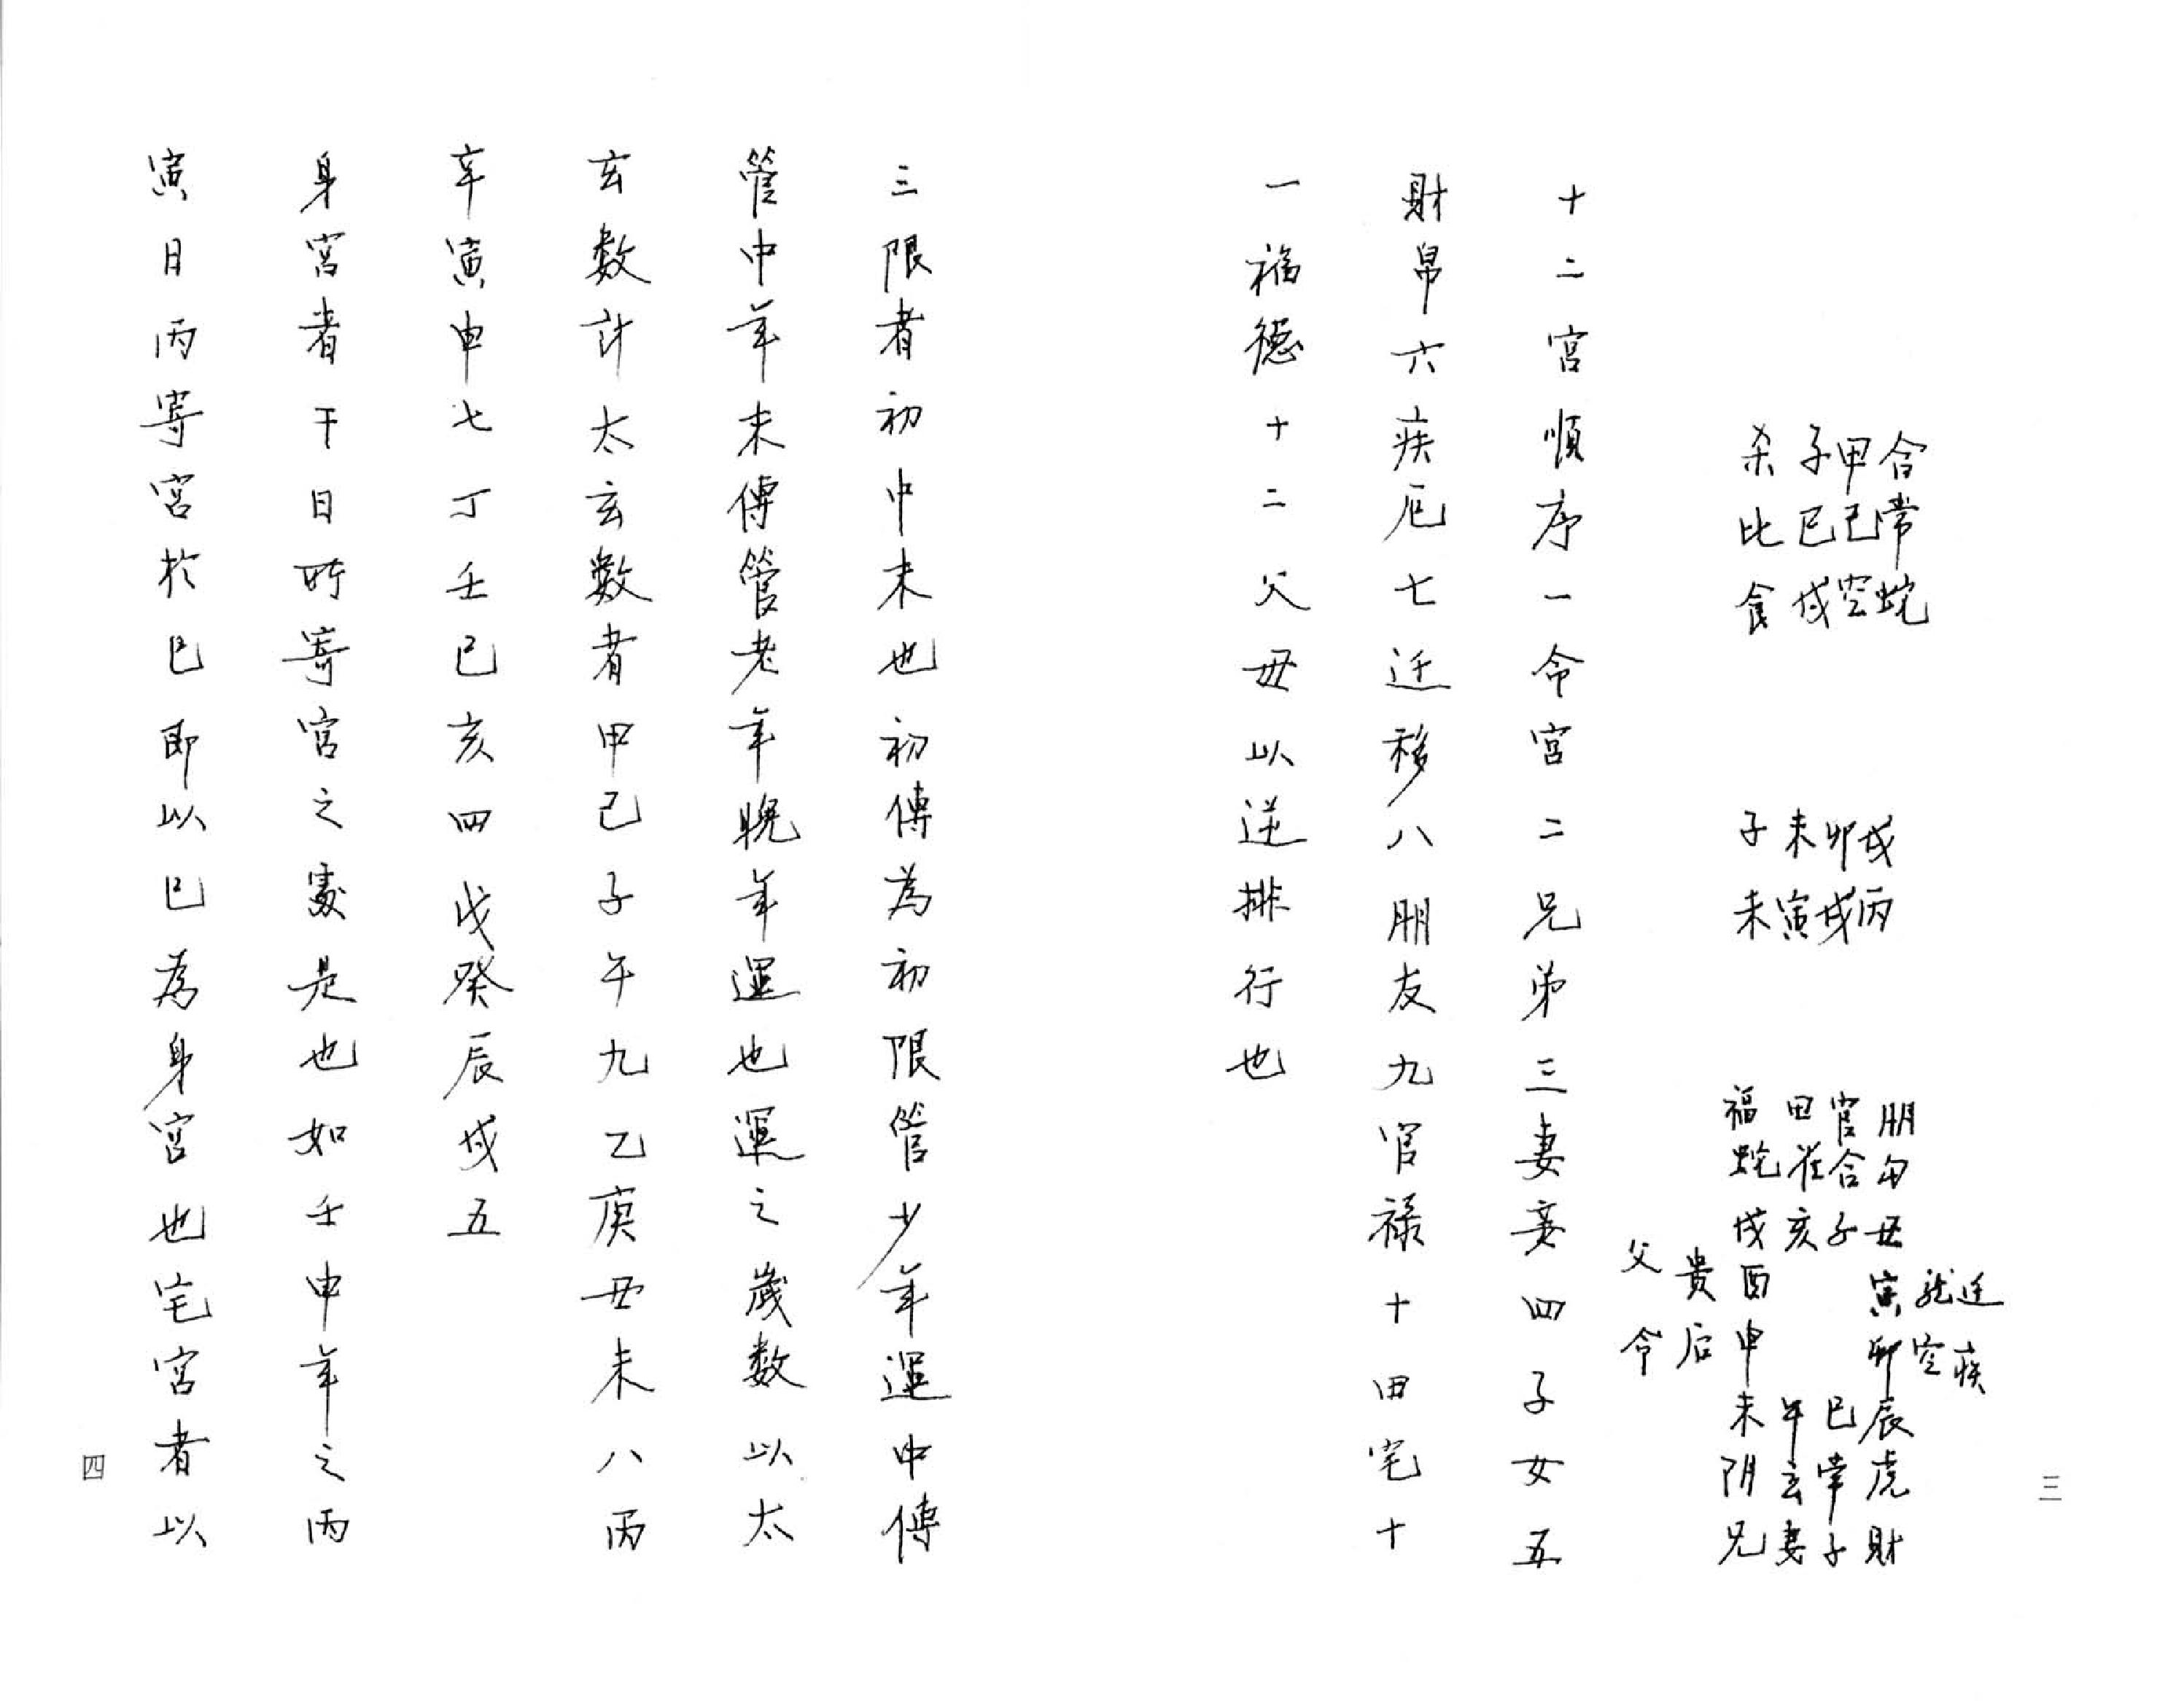 三
合常蛇
甲己空
子巳戌
杀比食
戌丙
卯戌
未寅
子未
迁疾
龙空
朋勾丑寅卯辰虎財
官合子巳常子
田雀亥午玄妻
福蛇戌酉申未阴兄
貴后
父命
十二宮順序一命宮二兄弟三妻妾四子女五
財帛六疾厄七迁移八朋友九官禄十田宅十
一福德十二父母以逆排行也
三限者初中末也初傳為初限管少年運中傳
管中年末傳管老年晚年運也運之歲数以太
玄数計太玄數者甲己子午九乙庚丑未八丙
辛寅申七丁壬巳亥四戊癸辰戌五
身宮者干日所寄宮之處是也如壬申年之丙
寅日丙寄宮於巳即以巳為身宮也宅宮者以
四